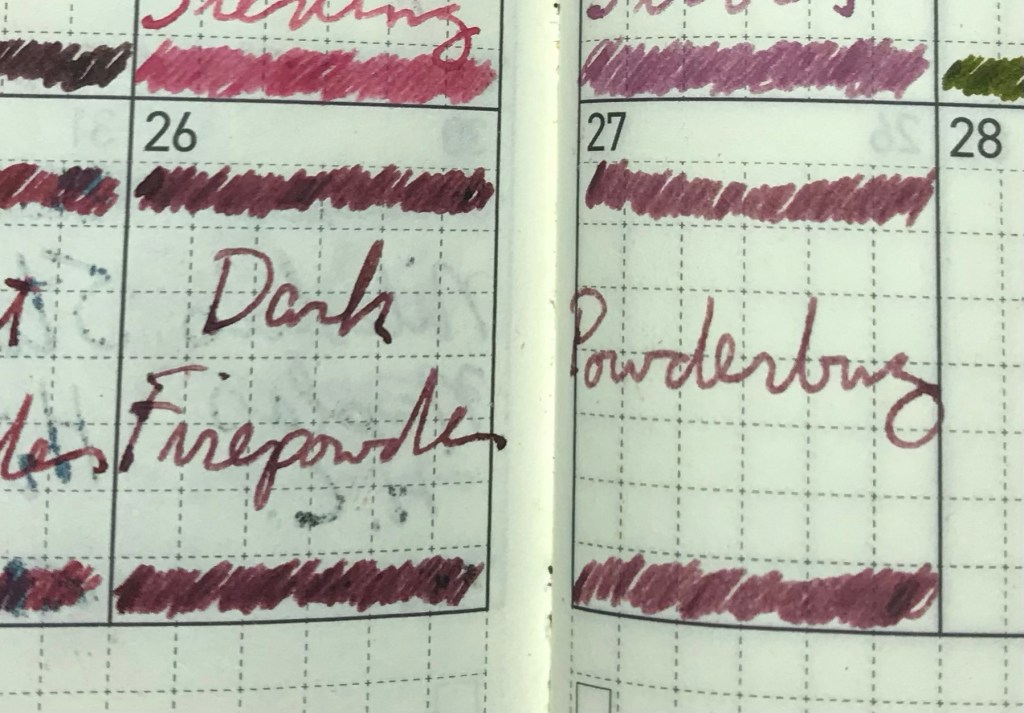 26
Dark
Firepowder
27
Powderbug
28